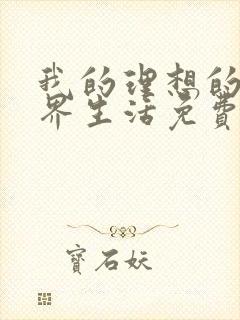 我的理想的
界生活免费
寶石妖